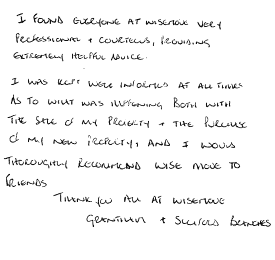 I FOUND EVERYONE AT WISEMOVE VERY
PROFESSIONAL + COURTEOUS, PROVIDING
EXTREMELY HELPFUL ADVICE.
I WAS KEPT WERE INFORMED AT ALL TIMES
AS TO WHAT WAS HAPPENING BOTH WITH
THE SALE OF MY PROPERTY + THE PURCHASE
OF MY NEW PROPERTY, AND I WOULD
THOROUGHLY RECOMMEND WISE MOVE TO
FRIENDS
THANK YOU ALL AT WISEMOVE
GRANTHAM + SLEAFORD BRANCHES